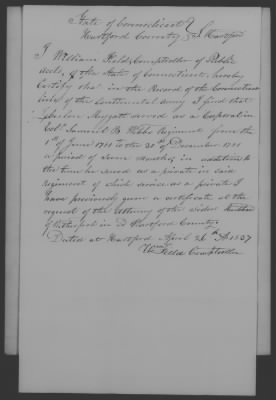 State of Connecticut } ss. Hartford
Hartford County
I William Field, Comptroller of Public
Accts. of the State of Connecticut, hereby
Certify that in the Record of the Connecticut
line of the Continental Army I find that
Hoggatt served as a Corporal in
Colo. Samuel B. Webbs Regiment from the
1st of June 1781 to the 31st of December 1781
a period of seven months, in addition to
the time he served as a private in said
regiment of which service as a private I
have previously given a certificate at the
request of the attorney of the widow
of in sd Hartford County.
Dated at Hartford April 26th AD 1837
Wm Field Comptroller